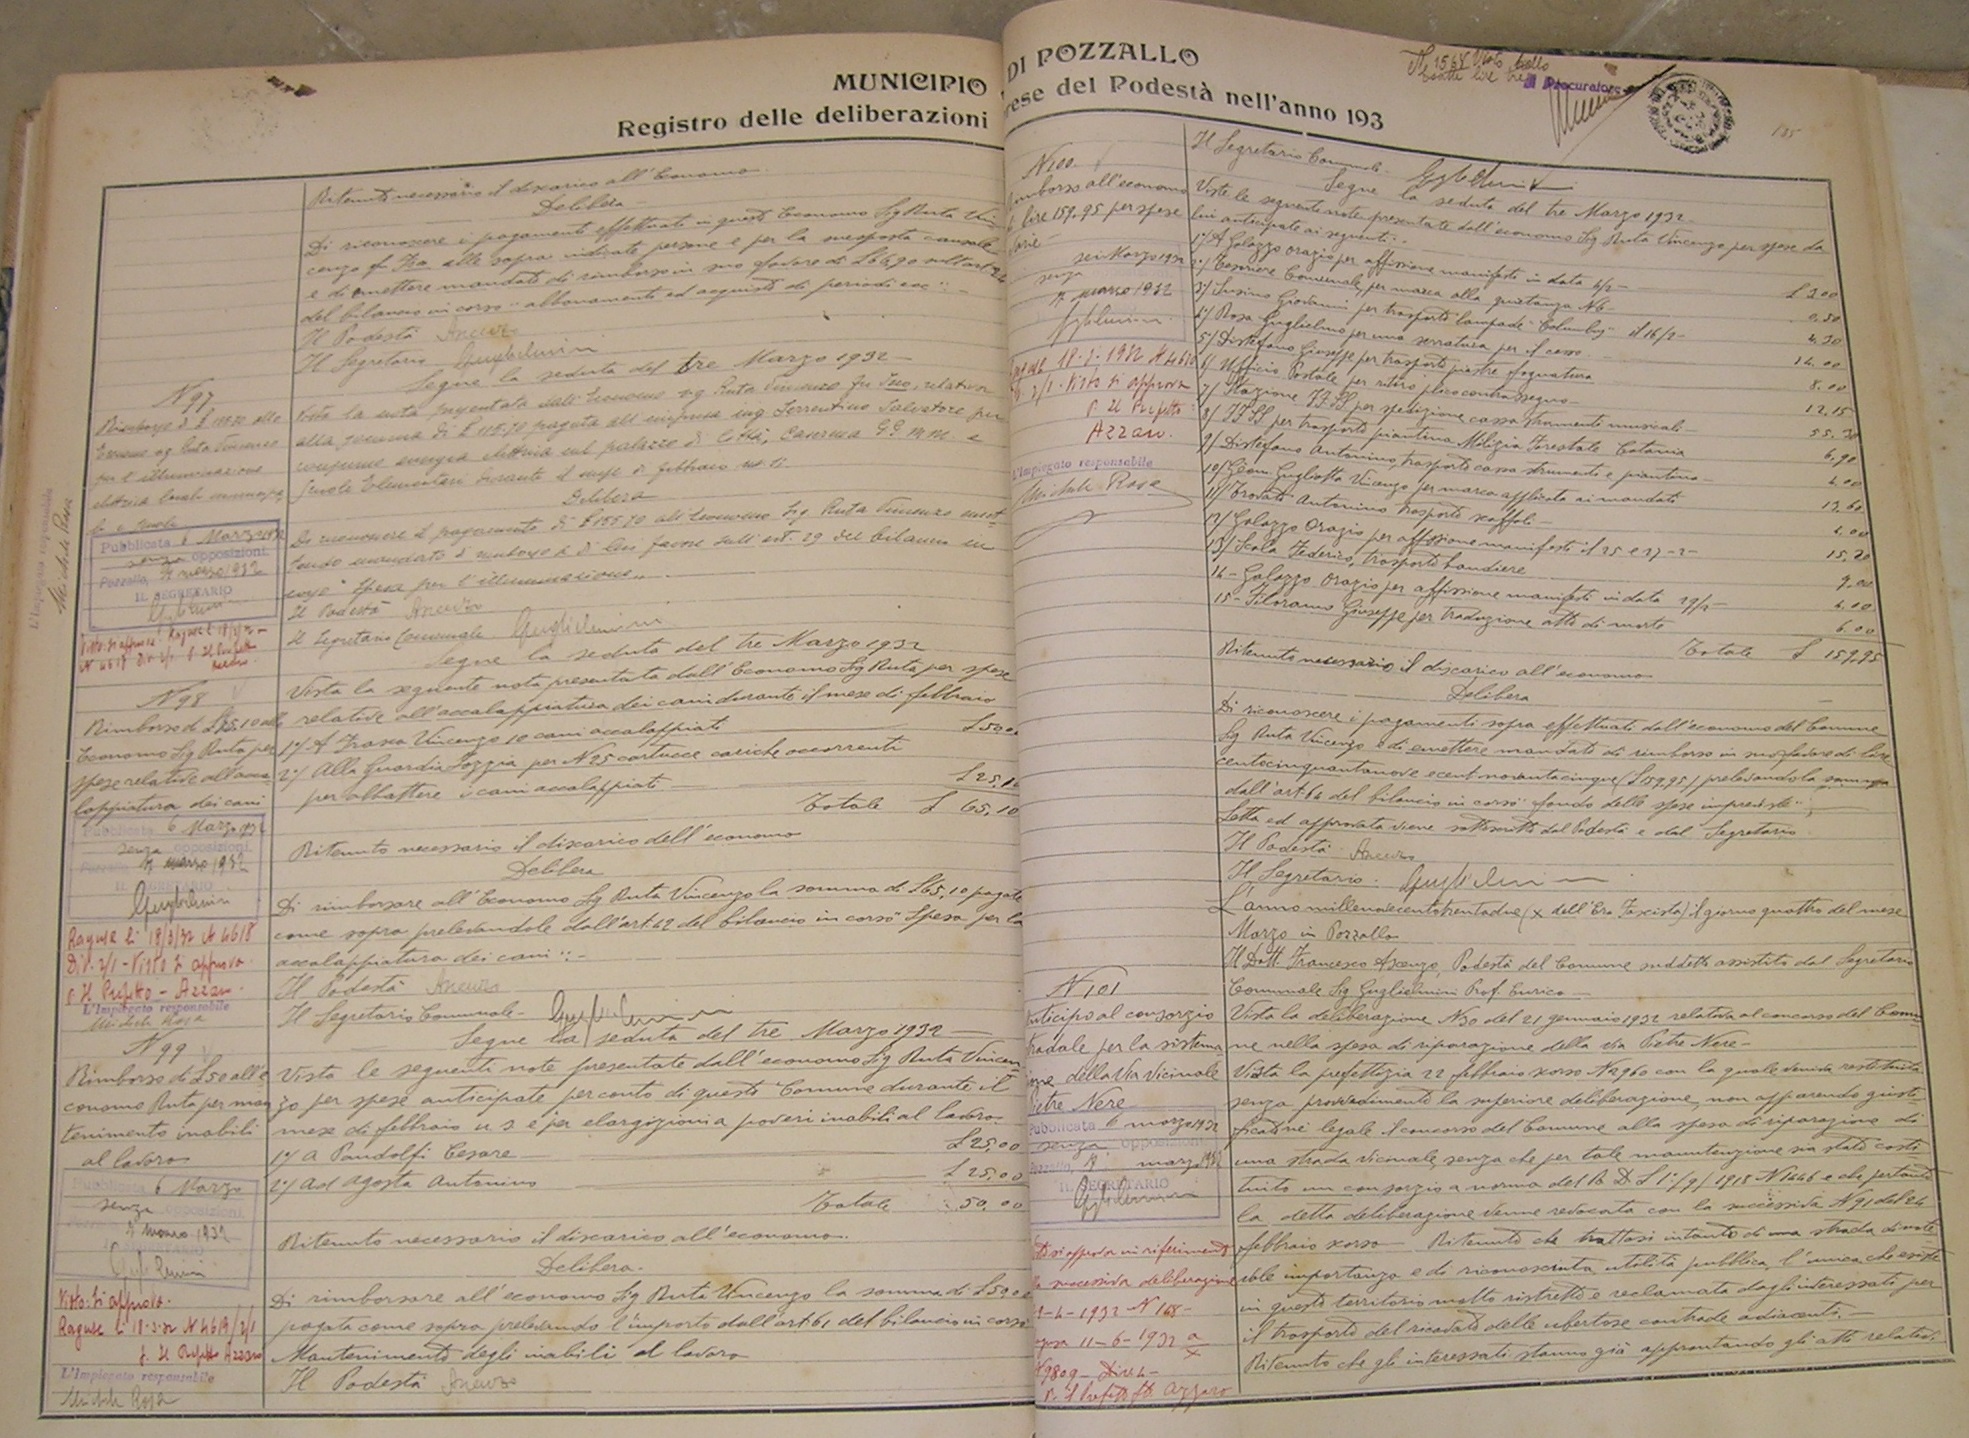 MUNICIPIO DI POZZALLO
Registro delle deliberazioni prese del Podestà nell'anno 193
Ritenuto necessario il discarico all'Economo
Delibera
Di riconoscere i pagamenti effettuati in questo Economo Sig Ruta Vin-
cenzo fu alle sopra indicate persone e per la suesposta causale
e di emettere mandato di rimborso in suo favore di £ 66,90 sull'art 24
del bilancio in corso "abbonamento ed acquisto di periodici ecc" -
Il Podestà
Il Segretario Guglielmini
Segue la seduta del tre Marzo 1932 -
N 97
Rimborso di £ allo
Economo sig Ruta Vincenzo
per l'illuminazione
elettrica locali
e scuole
Vista la nota presentata dall'Economo sig Ruta Vincenzo fu relativa
alla somma di £ pagata all' ing Sorrentino Salvatore per
consumo energia elettrica nel palazzo di Città, Caserma e
Scuole Elementari durante il mese di febbraio
Delibera
Di riconoscere il pagamento di £ all'Economo Sig. Ruta Vincenzo
mandato di rimborso a di lui favore sull'art. 29 del bilancio in
corso "Spese per l'illuminazione"
Il Podestà
Il Segretario Comunale Guglielmini
Pubblicata 6 Marzo 1932
senza opposizioni.
Pozzallo, 7 marzo 1932
IL SEGRETARIO
L'Impiegato responsabile
Michele Rosa
Segue la seduta del tre Marzo 1932
N 98
Rimborso di £ 65,10 allo
Economo Sig Ruta per
spese relative all'acca-
lappiatura dei cani
Vista la seguente nota presentata dall'Economo Sig Ruta per spese
relative all'accalappiatura dei cani durante il mese di febbraio
1°/ A Vincenzo 10 cani accalappiati £ 50,00
2°/ Alla Guardia per N 25 cartucce cariche occorrenti
per abbattere i cani accalappiati £
Totale £ 65,10
Ritenuto necessario il discarico dell'economo
Delibera
Di rimborsare all'Economo Sig Ruta Vincenzo la somma di £ 65,10 pagata
come sopra prelevandole dall'art. 42 del bilancio in corso "Spesa per la
accalappiatura dei cani" -
Il Podestà
Il Segretario Comunale - Guglielmini
Pubblicata 6 Marzo 1932
senza opposizioni
7 marzo 1932
IL SEGRETARIO
Guglielmini
Ragusa li 18/3/32 N 4618
Div. 2/1 - Visto si approva.
p. Il Prefetto - Azzaro
L'Impiegato responsabile
Michele Rosa
Segue la seduta del tre Marzo 1932 -
N 99
Rimborso di £ 50 all'e-
conomo Ruta per man-
tenimento inabili
al lavoro
Vista le seguenti note presentate dall'economo Sig Ruta Vincen-
zo per spese anticipate per conto di questo Comune durante il
mese di febbraio u. s. e per elargizioni a poveri inabili al lavoro
1°/ a Pandolfi Cesare £ 25,00
2°/ ad Agosta Antonino £ 25,00
Totale 50,00
Ritenuto necessario il discarico all'economo.
Delibera.
Di rimborsare all'economo Sig Ruta Vincenzo la somma di £ 50,00
pagata come sopra prelevando l'importo dall'art. 61 del bilancio in corso
Mantenimento degli inabili al lavoro
Il Podestà
Pubblicata 6 Marzo
senza opposizioni
7 marzo 1932
Visto. Si approva.
Ragusa li 18-3-32 N 4619/2/1
p. Il Prefetto Azzaro
L'Impiegato responsabile
Michele Rosa
N 1568 Visto bollo
lire tre
Il Procuratore
185
Il Segretario Comunale
Segue la seduta del tre Marzo 1932
N 100
Rimborso all'economo
di lire 159,95 per spese
Viste le seguenti note presentate dall'economo Sig Ruta Vincenzo per spese da
lui anticipate ai seguenti:
1°/ A Galazzo Orazio per affissione manifesti in data 6/2 - £ 3.00
2°/ Tesoriere Comunale per marca alla quietanza N6 - 0.50
3°/ Susino Giovanni per trasporto lampade "Columbus" il 16/2 - 4,50
4°/ Rosa Guglielmo per una serratura per il corso 14.00
5°/ Distefano Giuseppe per trasporto piastre fognatura 8.00
6°/ Ufficio Postale per ritiro plico contrassegno - 12,15
7°/ Stazione FF.SS per spedizione cassa strumenti musicali - 55.30
8°/ FF SS per trasporto piantine Milizia Forestale Catania 6,90
9°/ Distefano Antonino, trasporto cassa strumenti e piantine - 4.00
10°/ Geom. Gugliotta Vincenzo per marca applicata ai mandati 13,60
11°/ Trovato Antonino trasporto scaffali - 4.00
12°/ Galazzo Orazio per affissione manifesti il 25 e 27-2- 15,20
13°/ Scala Federico, trasporto bandiere 9,00
14 - Galazzo Orazio per affissione manifesti in data 29/2 - 4.00
15 - Giuseppe per traduzione atto di morte 6.00
Totale £ 159,95
sei Marzo 1932
senza
7 marzo 1932
Ragusa 18-3-1932 N 4620
Div. 2/1 - Visto si approva
p. Il Prefetto
Azzaro.
L'Impiegato responsabile
Michele Rosa
Ritenuto necessario il discarico all'economo
Delibera
Di riconoscere i pagamenti sopra effettuati dall'economo del Comune
Sig Ruta Vincenzo e di emettere mandato di rimborso in suo favore di lire
centocinquantanove e cent novantacinque (£ 159,95) prelevando la somma
dall'art. 64 del bilancio in corso "fondo delle spese impreviste";
Letto ed approvato viene sottoscritto dal Podestà e dal Segretario
Il Podestà
Il Segretario. Guglielmini
L'anno millenovecentotrentadue (X dell'Era Fascista) il giorno quattro del mese
Marzo in Pozzallo
Il Dott. Francesco Ascenzo, Podestà del Comune suddetto assistito dal Segretario
Comunale Sig Guglielmini Prof. Enrico -
N 101
Anticipo al consorzio
stradale per la sistema-
zione della Via Vicinale
Pietre Nere
Vista la deliberazione N30 del 21 gennaio 1932 relativa al concorso del Comu-
ne nella spesa di riparazione della via Pietre Nere -
Vista la prefettizia 22 febbraio scorso N 2960 con la quale veniva restituita
senza provvedimento la superiore deliberazione, non apparendo giusti-
ficato nè legale il concorso del Comune alla spesa di riparazione di
una strada vicinale, senza che per tale manutenzione sia stato costi-
tuito un consorzio a norma del R. D. L 1°/9/1918 N 1446 e che pertanto
la detta deliberazione venne revocata con la successiva N 91 del 24
febbraio scorso - Ritenuto che trattasi intanto di una strada di note-
vole importanza e di riconosciuta utilità pubblica, l'unica che esiste
in questo territorio molto ristretto e reclamata dagli interessati per
il trasporto del ricavato delle ubertose contrade adiacenti.
Ritenuto che gli interessati stanno già approntando gli atti relativi.
Pubblicata 6 marzo 1932
senza opposizioni.
Pozzallo, 7 marzo 1932
IL SEGRETARIO
Guglielmini
si approva in riferimento
alla successiva deliberazione
-4-1932 N 168-
Ragusa 11-6-1932
N 9809 - Div.
p. Il Prefetto Azzaro